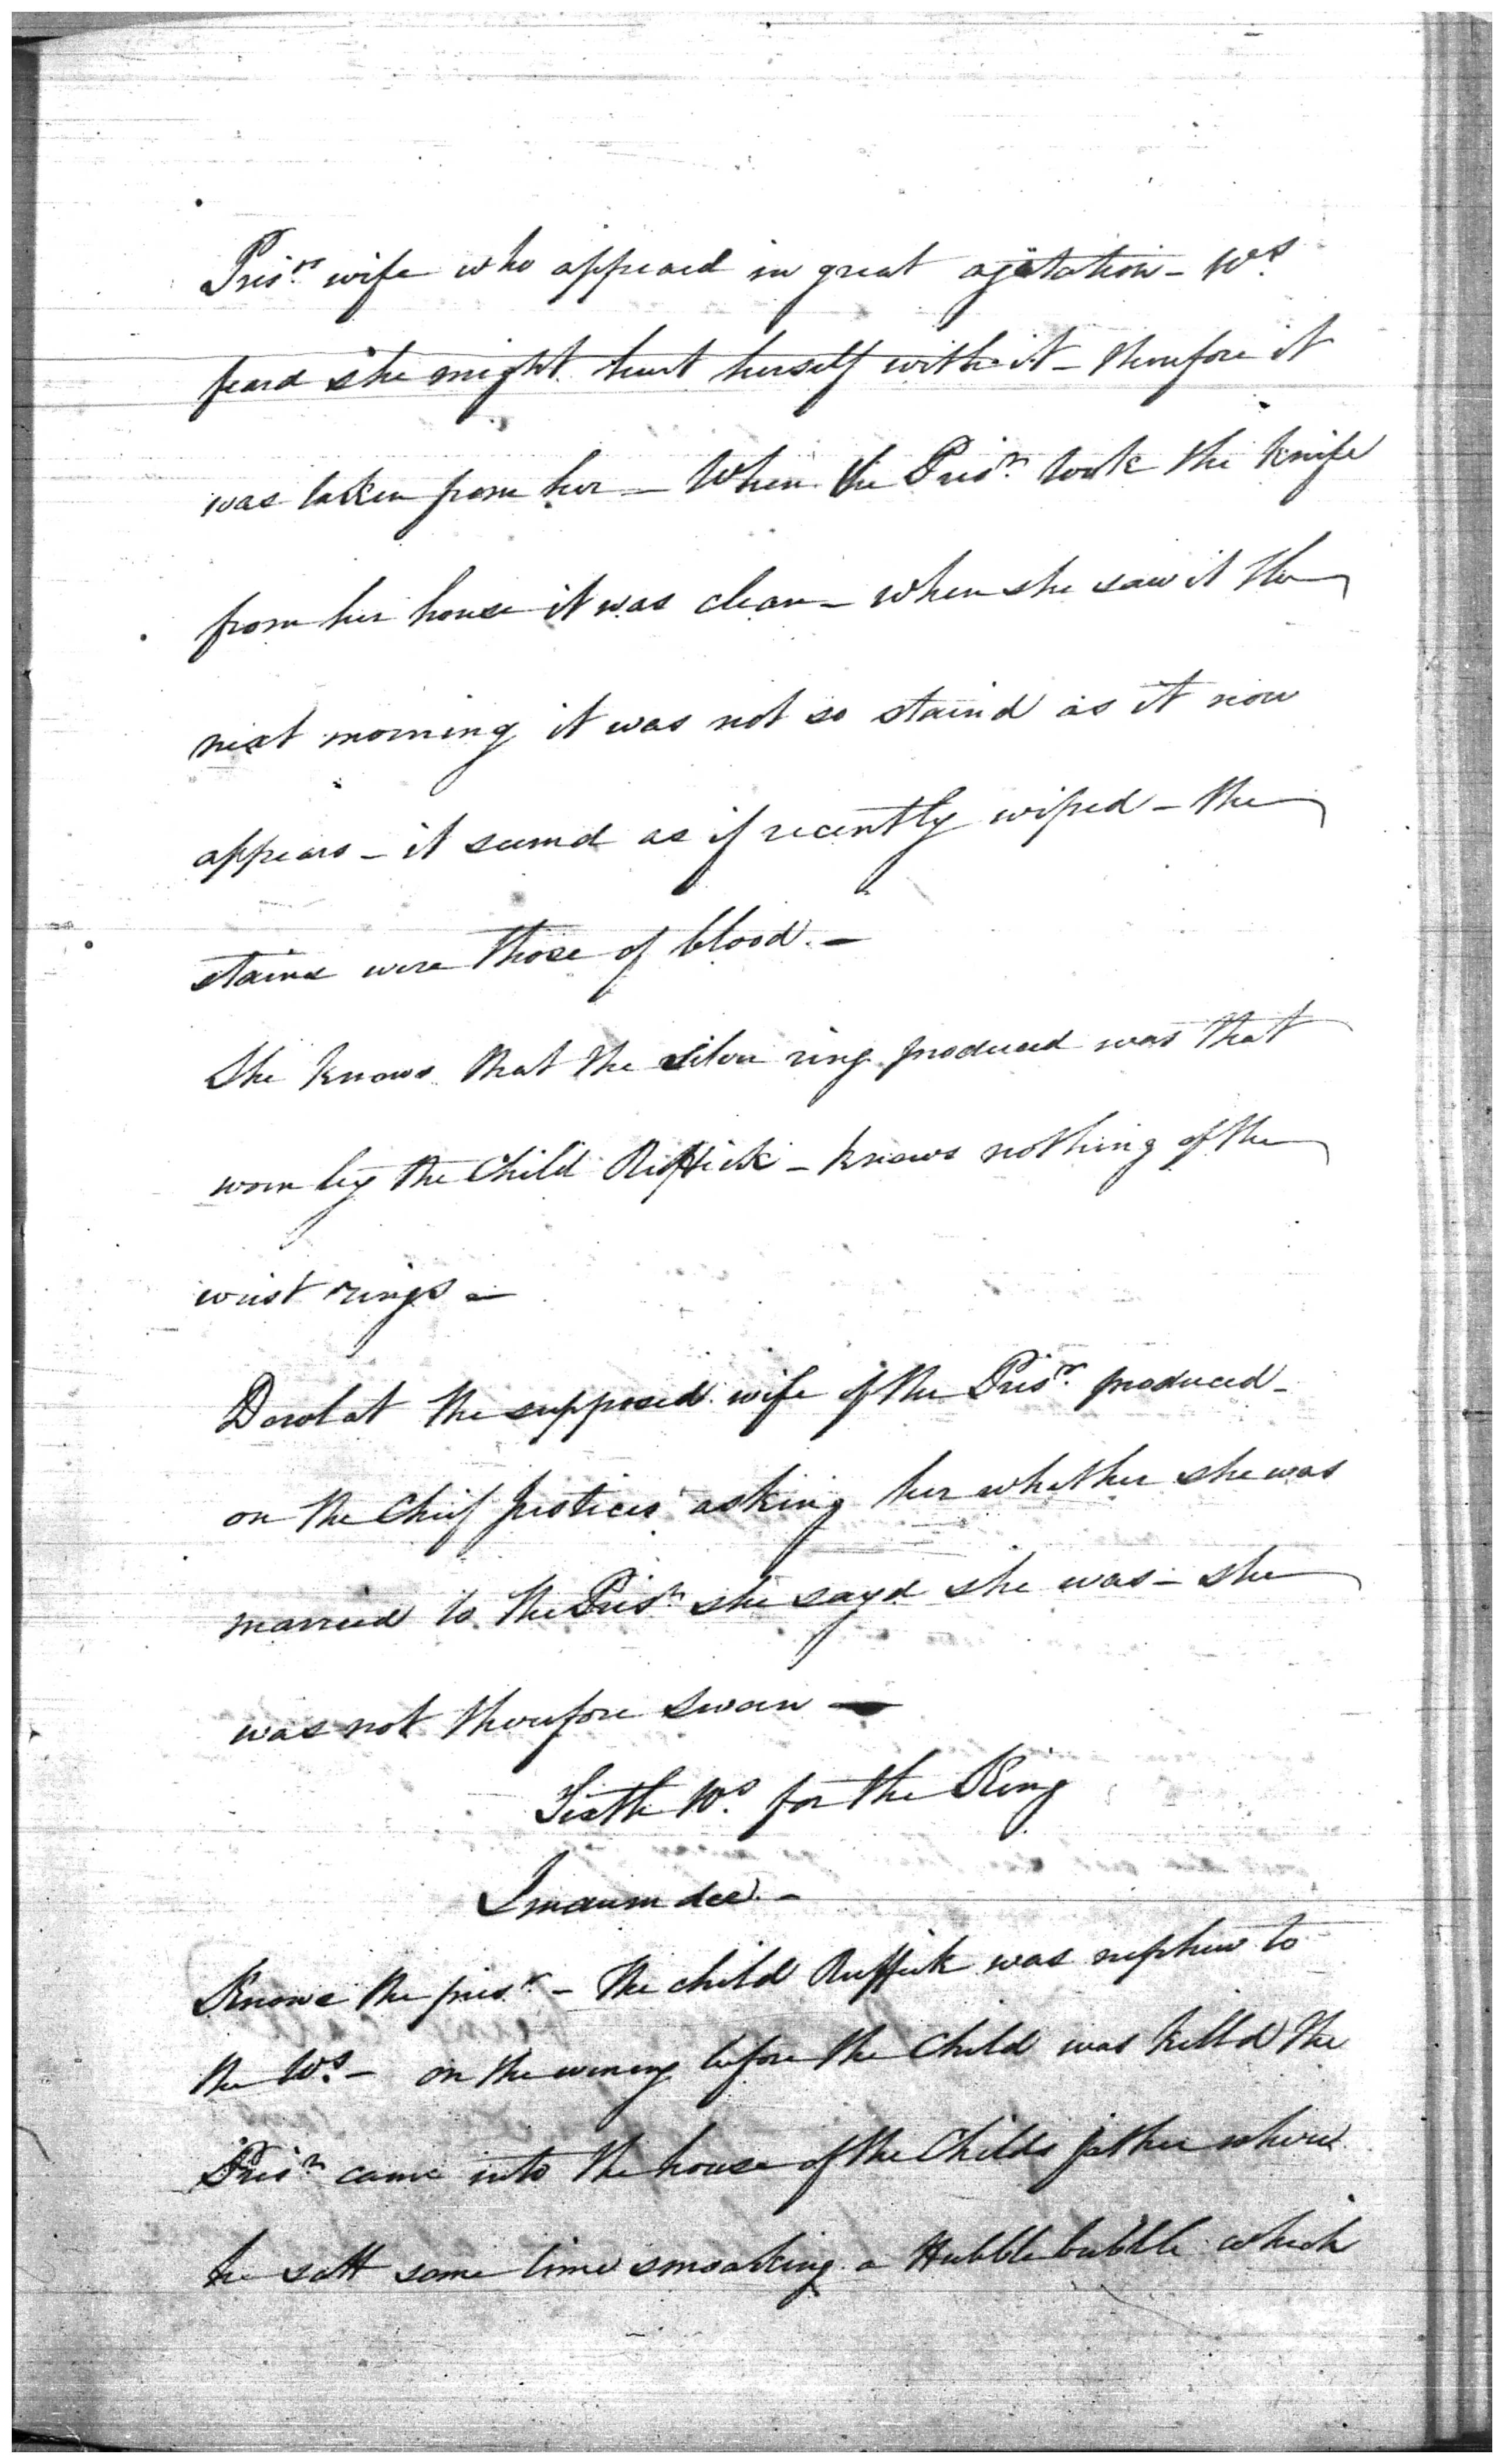 Prisr. wife who appeard in great agitation - Ws.
feard she might hurt herself with it - therefore it
was taken from her - When the Prisr. took the Knife
from her house it was clean - when she saw it the
next morning it was not so staind as it now
appears - it seemd as if recently wiped - the
stains were those of blood. -
She knows that the silver ring produced was that
worn by the Child Ruffick - knows nothing of the
wrist rings -
Dowlat the supposed wife of the Prisr. produced -
on the Chief Justices asking her whether she was
married to the Prisr. she sayd she was - she
was not therefore sworn -
Sixth Ws. for the King
Imaum dee. -
Knows the prisr. - The child Ruffick was nephew to
the Ws. - on the evening before the Child was killd the
Prisr. came into the house of the Childs father where
he satt some time smoaking a Hubblebubble which